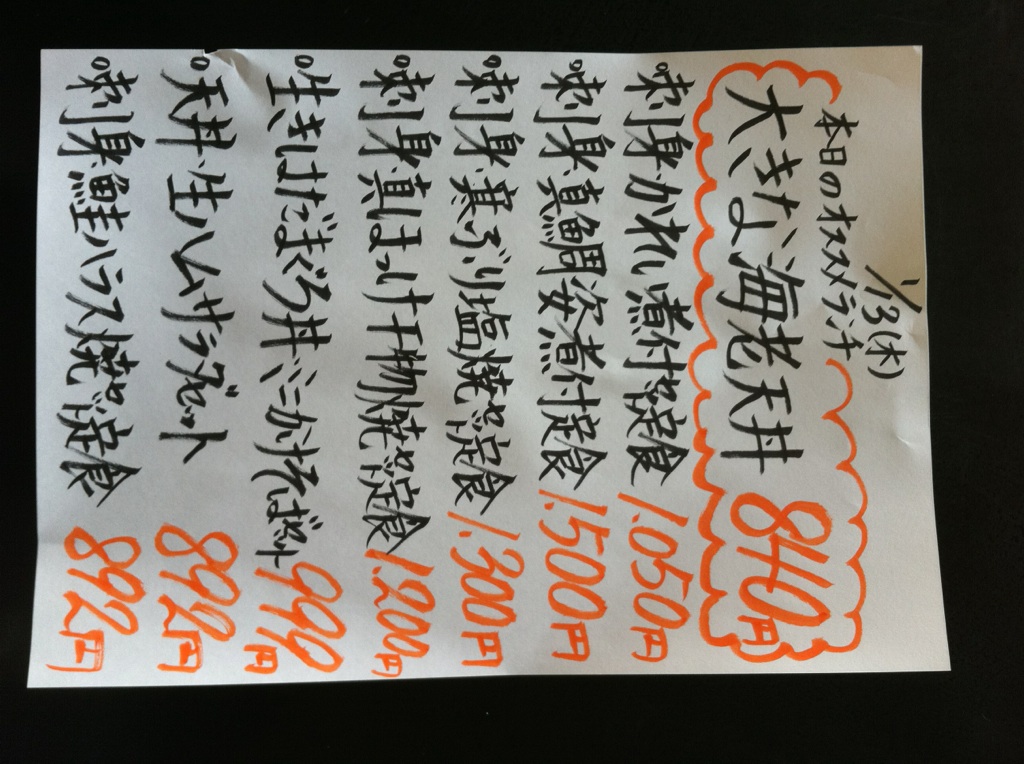 1/13(木)
本日のオススメランチ
大きな海老天丼 840円
。刺身・かれい煮付定食 1.050円
。刺身・真鯛姿煮付定食 1.500円
。刺身・寒ぶり塩焼き定食 1.300円
。刺身・真ほっけ干物焼き定食 1.200円
。生きはだまぐろ丼・ミニかけそばセット 990円
。天丼・生ハムサラダセット 892円
。刺身・鮭ハラス焼き定食 892円